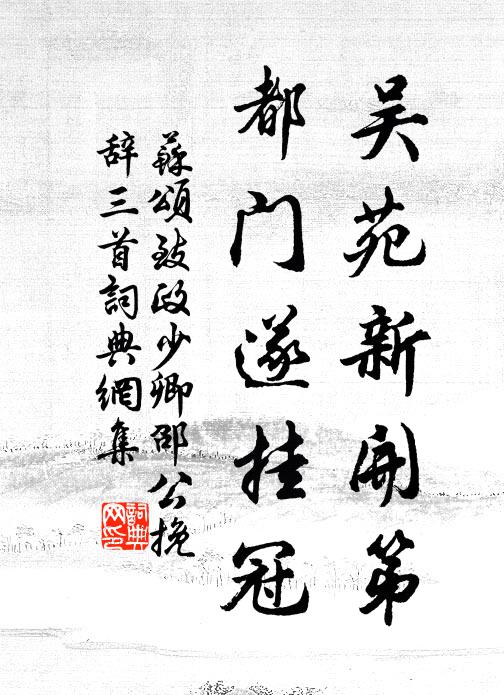 吴苑新开第
都门遂挂冠
蘇頌致政少卿邵公挽
辞三首詞典網集
詞典网印